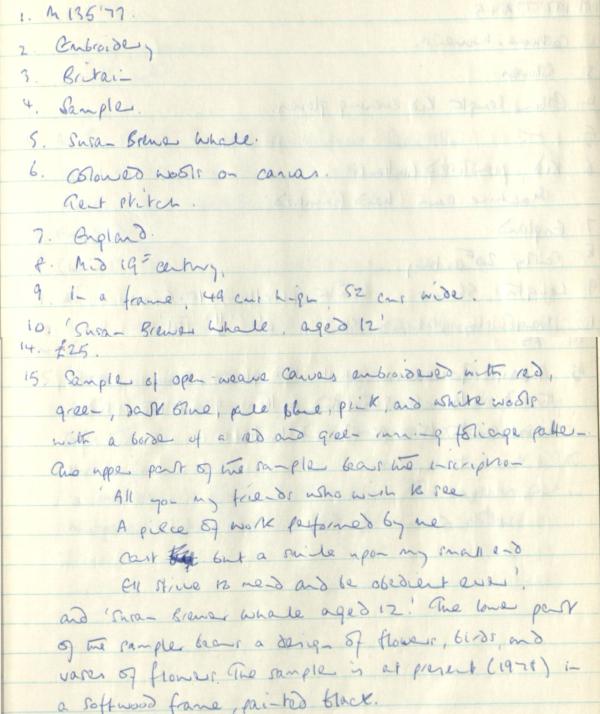 1. M 135'77.
2 Embroidery
3. Britain
4. Sampler.
5. Susan Brewer Whale.
6. Coloured wools on canvas.
Tent stitch.
7. England.
8. Mid 19th century.
9 In a frame, 49 cms high 52 cms wide.
10. 'Susan Brewer Whale, aged 12'
14. £25.
15 Sampler of open-weave canvas embroidered with red,
green, dark blue, pale blue, pink, and white wools
with a border of a red and green running foliage pattern.
The upper part of the sample bears the inscription
'All you my friends who wish to see
A piece of work performed by me
Cast but a smile upon my small end
I'll strive to mend and be obedient ever'.
and 'Susan Brewer Whale aged 12.' The lower part
of the sampler bears a design of flowers, birds, and
vases of flowers. The sampler is at present (1978) in
a softwood frame, painted black.